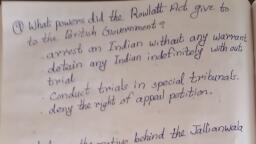 ① What powers did the Rowlatt Act give to
to the British Government?
. arrest an Indian without any warrant
detain any Indian indefinitely with out
trial
. Conduct trials in special tribunals.
. deny the right of appeal petition.
behind the Jallianwala